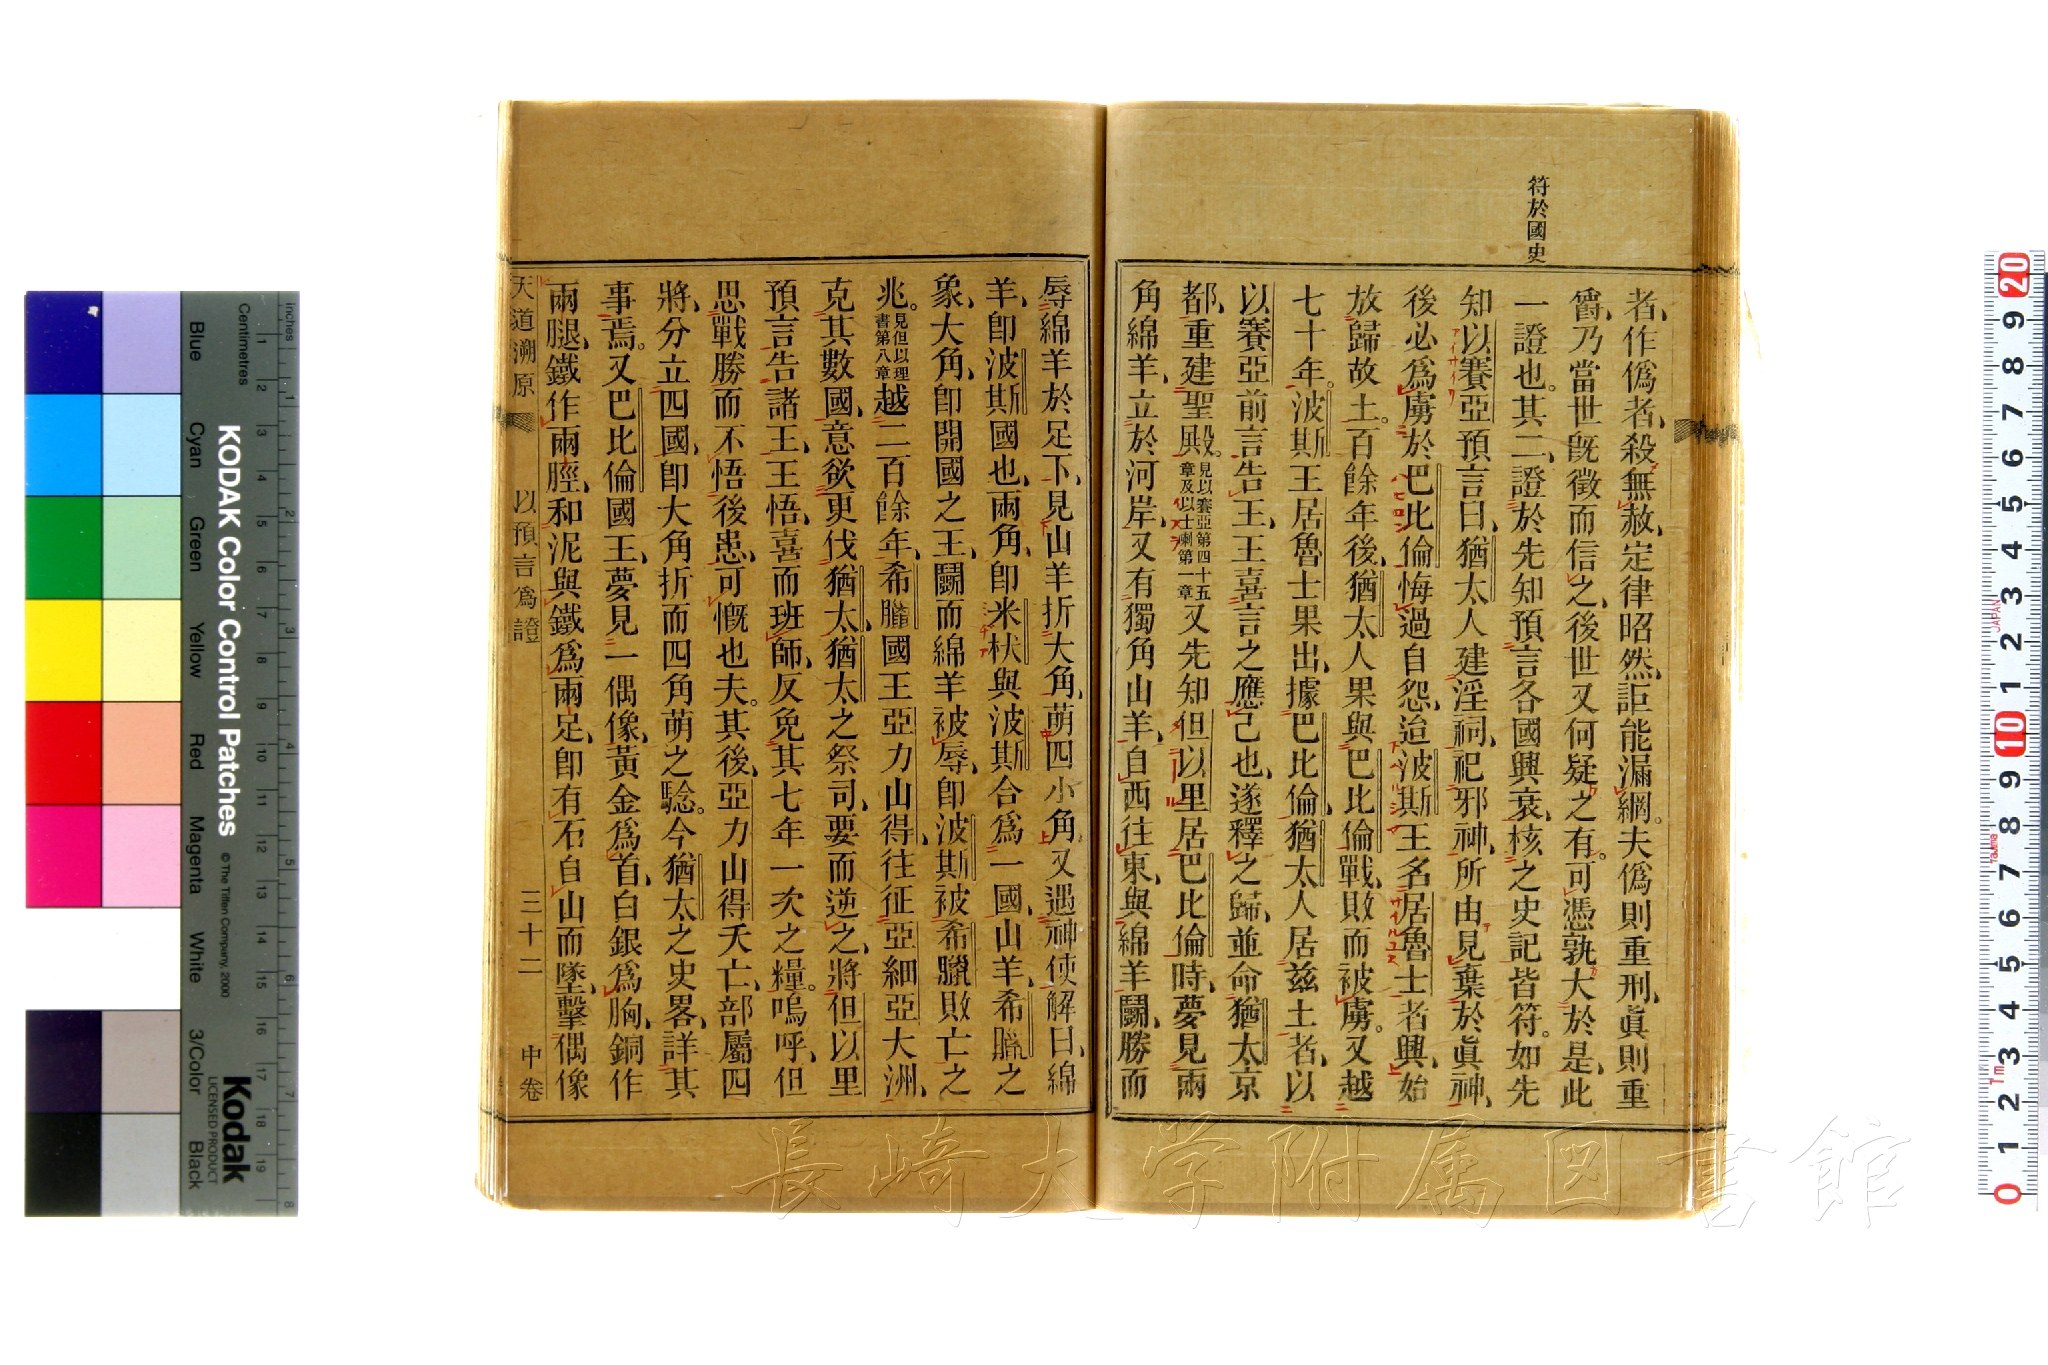 符於國史
者、作僞者、殺無赦、定律昭然、詎能漏網。夫僞則重刑、眞則重
爵、乃當世旣徵而信之、後世又何疑之有。可憑孰大於是、此
一證也。其二、證於先知預言各國興衰、核之史記皆符。如先
知以賽亞預言曰、猶太人建淫祠、祀邪神、所由見棄於眞神、
後必爲虜於巴比倫、悔過自怨、迨波斯王名居魯士者興、始
放歸故土。百餘年後、猶太人果與巴比倫戰、敗而被虜。又越
七十年。波斯王居魯士果出、據巴比倫、猶太人居茲土者、以
以賽亞前言告王、王喜言之應己也、遂釋之歸、並命猶太京
都、重建聖殿。見以賽亞第四十五章及以士喇第一章又先知但以里居巴比倫時、夢見兩
角綿羊、立於河岸、又有獨角山羊、自西往東、與綿羊鬭、勝而
辱綿羊於足下、見山羊折大角、萌四小角、又遇神使解曰、綿
羊、卽波斯國也、兩角、卽米杕與波斯合爲一國、山羊、希臘之
象、大角、卽開國之王、鬭而綿羊被辱、卽波斯被希臘敗亡之
兆。見但以理書第八章越二百餘年、希臘國王亞力山得、往征亞細亞大洲、
克其數國、意欲更伐猶太、猶太之祭司、要而逆之、將但以里
預言告諸王、王悟、喜而班師、反免其七年一次之糧。嗚呼、但
思戰勝而不悟後患、可慨也夫。其後、亞力山得夭亡、部屬四
將、分立四國、卽大角折而四角萌之騐。今猶太之史畧、詳其
事焉。又巴比倫國王、夢見一偶像、黃金爲首、白銀爲胸、銅作
兩腿、鐵作兩脛、和泥與鐵爲兩足、卽有石自山而墜、擊偶像
天道溯原 以預言爲證 三十二 中卷
長崎大学附属図書館
KODAK Color Control Patches
©The Tiffen Company, 2000
Kodak
LICENSED PRODUCT
inches
Centimetres
Blue Cyan Green Yellow Red Magenta White 3/Color Black